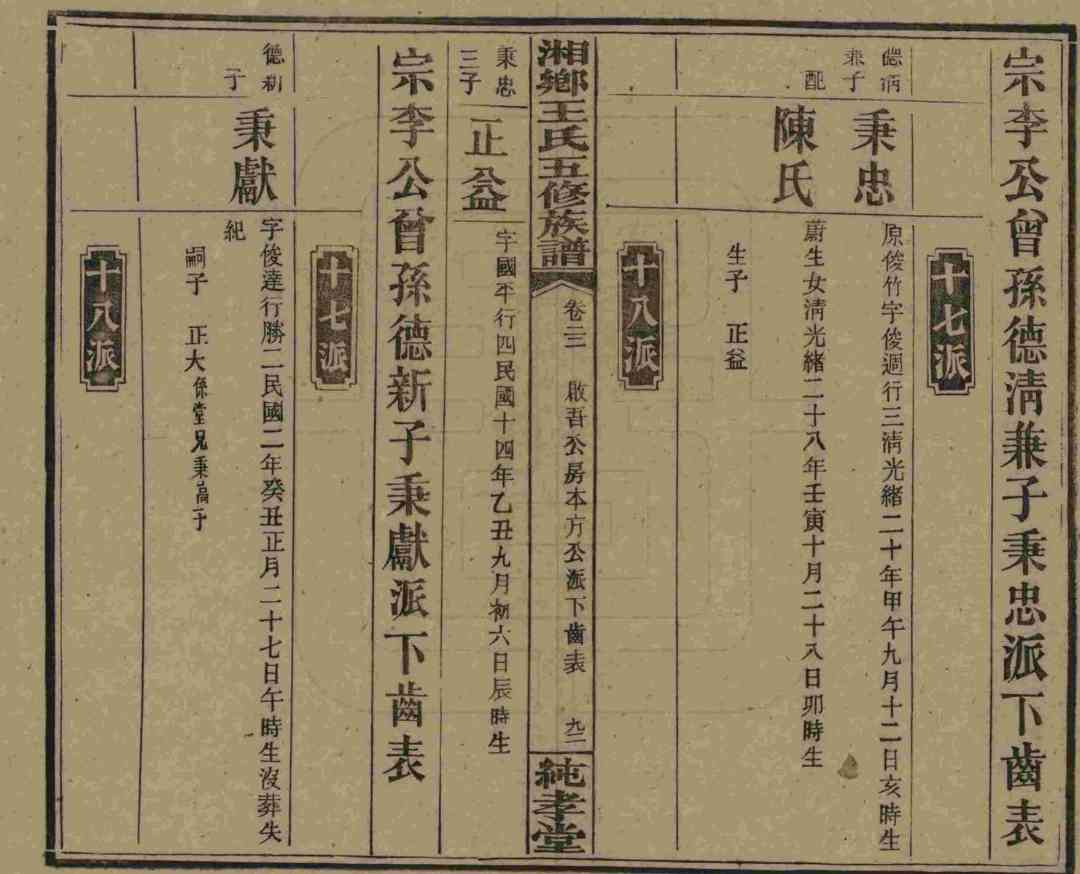 宗李公曾孫德清兼子秉忠派下齒表
十七派
兼子
秉忠
原俊竹字俊週行三清光緒二十年甲午九月十二日亥時生
配
陳氏
蔚生女清光緒二十八年壬寅十月二十八日卯時生
生子 正益
十八派
湘鄉王氏五修族譜
卷三三 啟吾公房本方公派下齒表 九二
純孝堂
秉忠
三子
正益
字國平行四民國十四年乙丑九月初六日辰時生
宗李公曾孫德新子秉獻派下齒表
十七派
德新
子
秉獻
字俊達行勝二民國二年癸丑正月二十七日午時生沒葬失
紀
嗣子 正大係堂兄秉高子
十八派